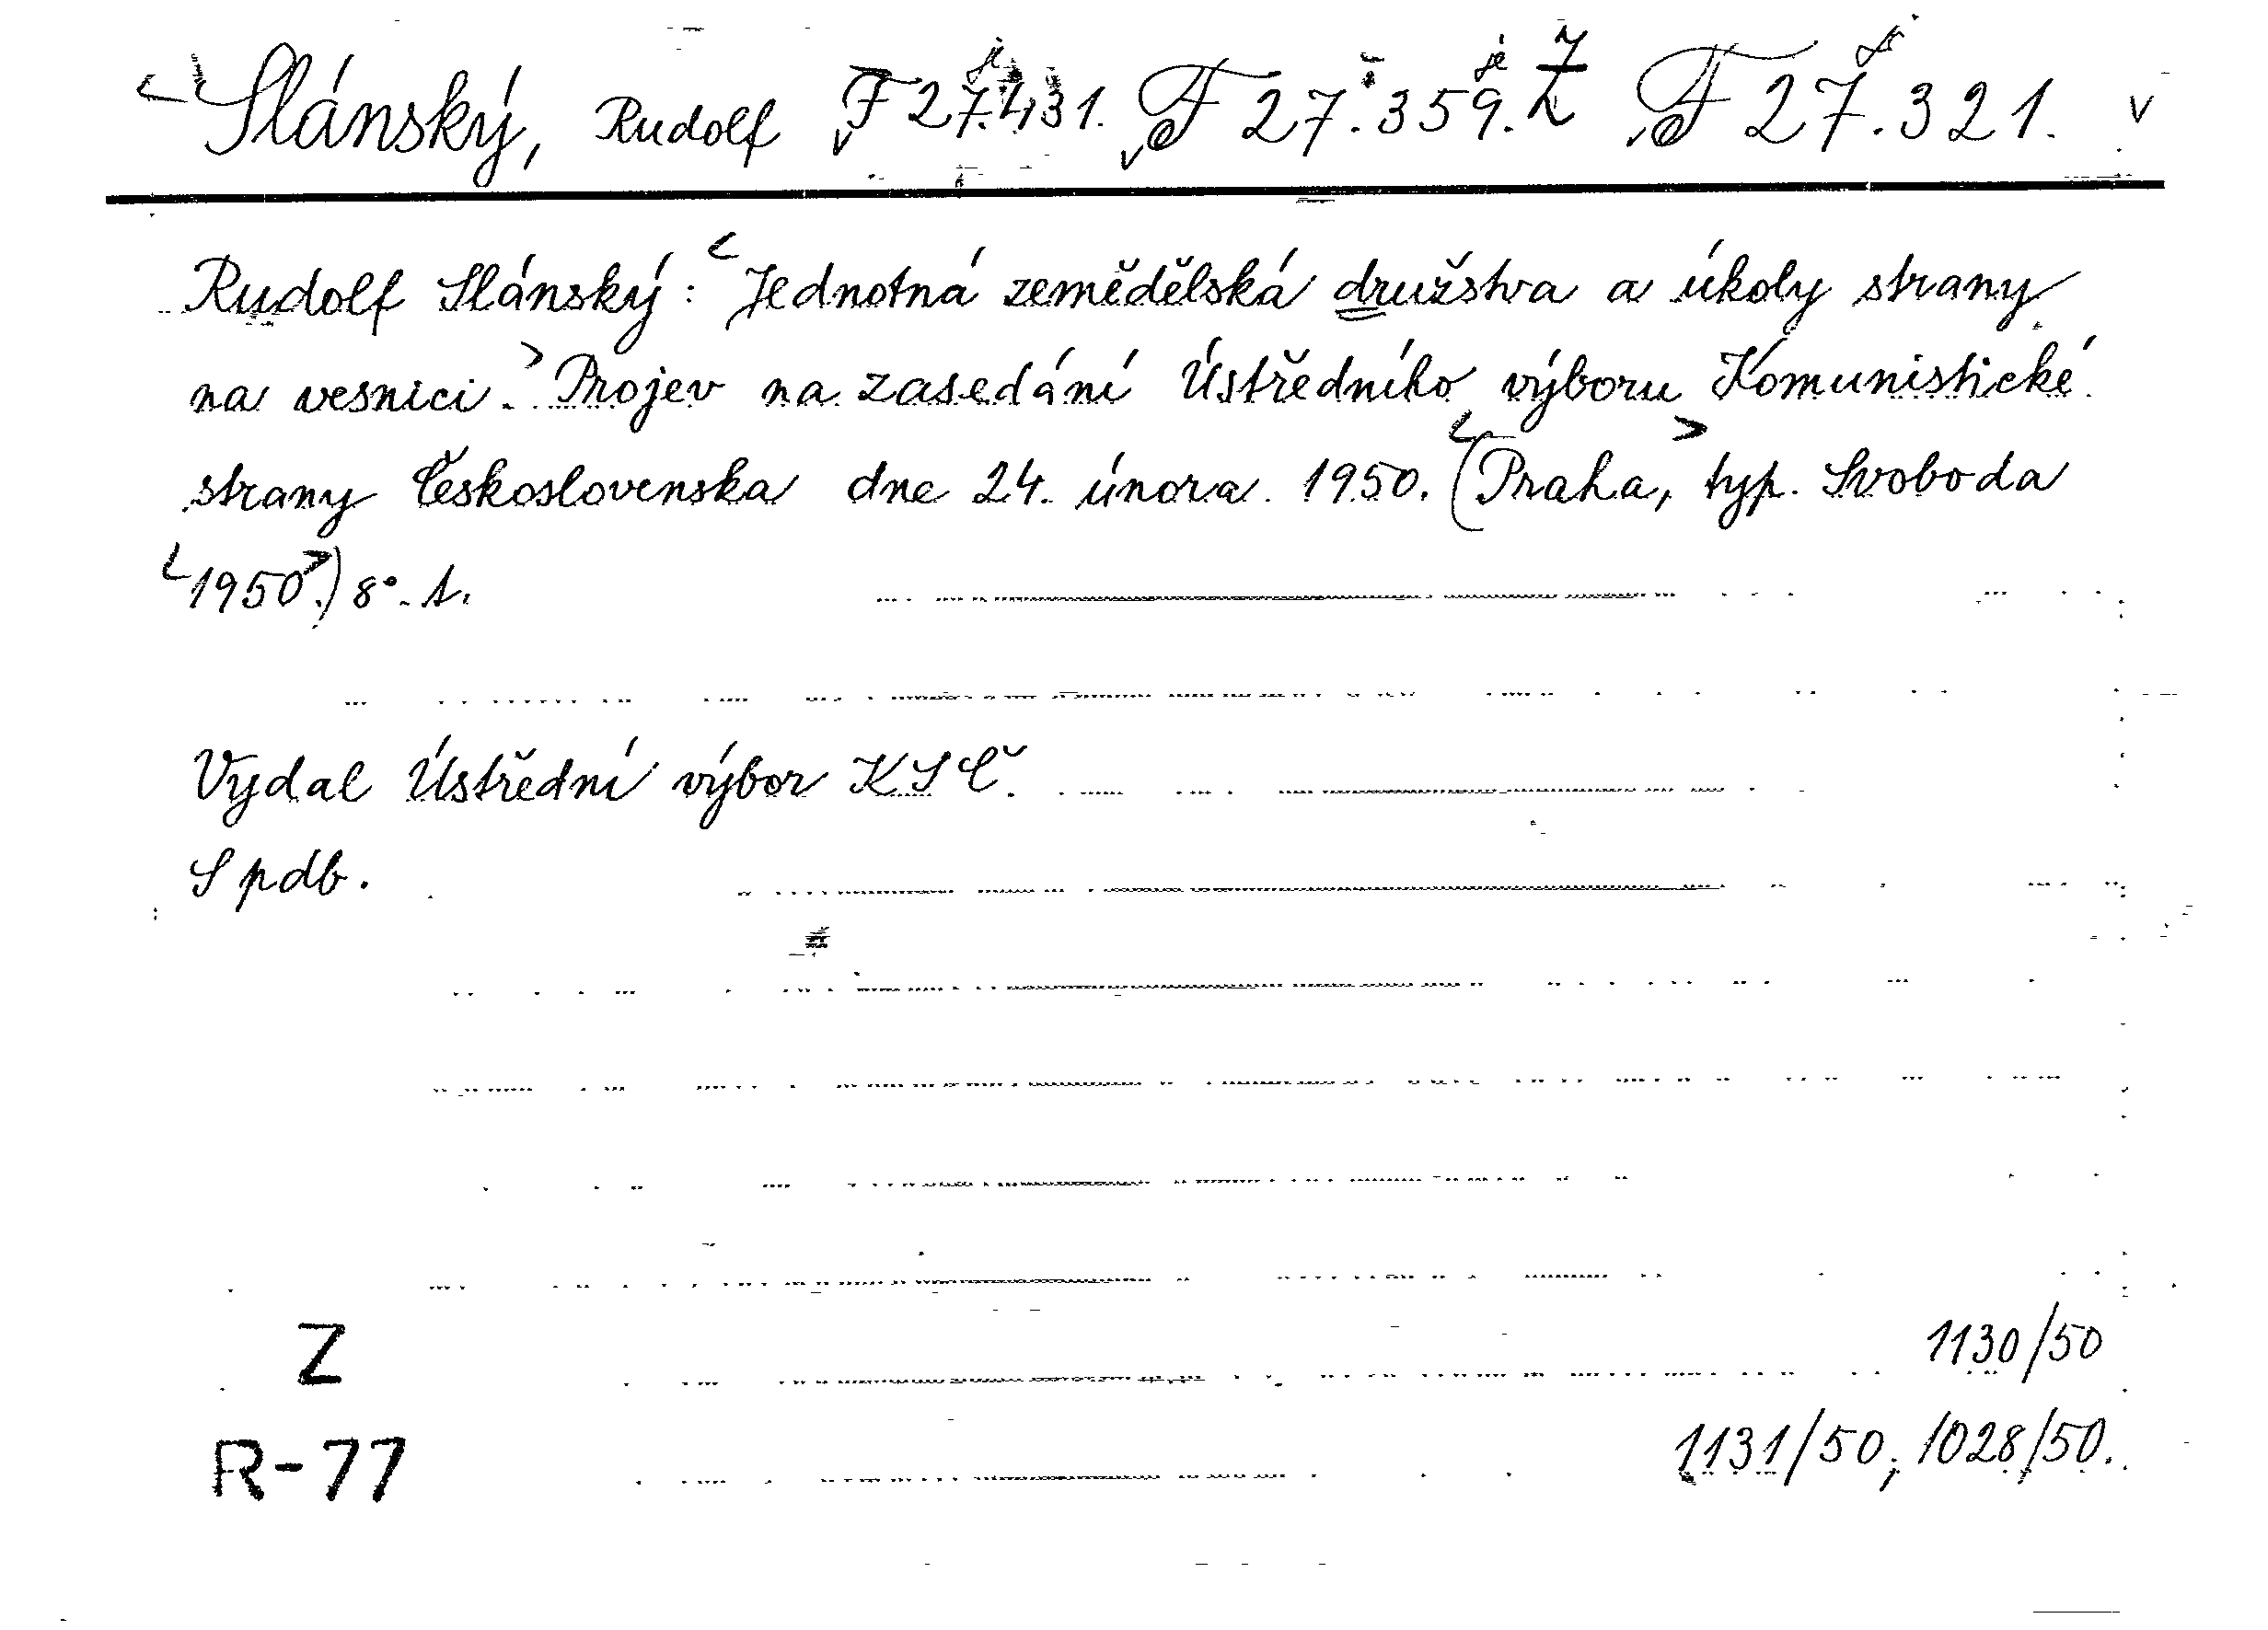 Slánský, Rudolf F 27.431. F 27.359. Z F 27.321. v
Rudolf Slánský: Jednotná zemědělská družstva a úkoly strany
na vesnici. Projev na zasedání Ústředního výboru Komunistické
strany Československa dne 24. února 1950. (Praha, typ. Svoboda
1950.) 8°. s.
Vydal Ústřední výbor KSČ.
S pdb.
Z 1130/50
R-77 1131/50, 1028/50.